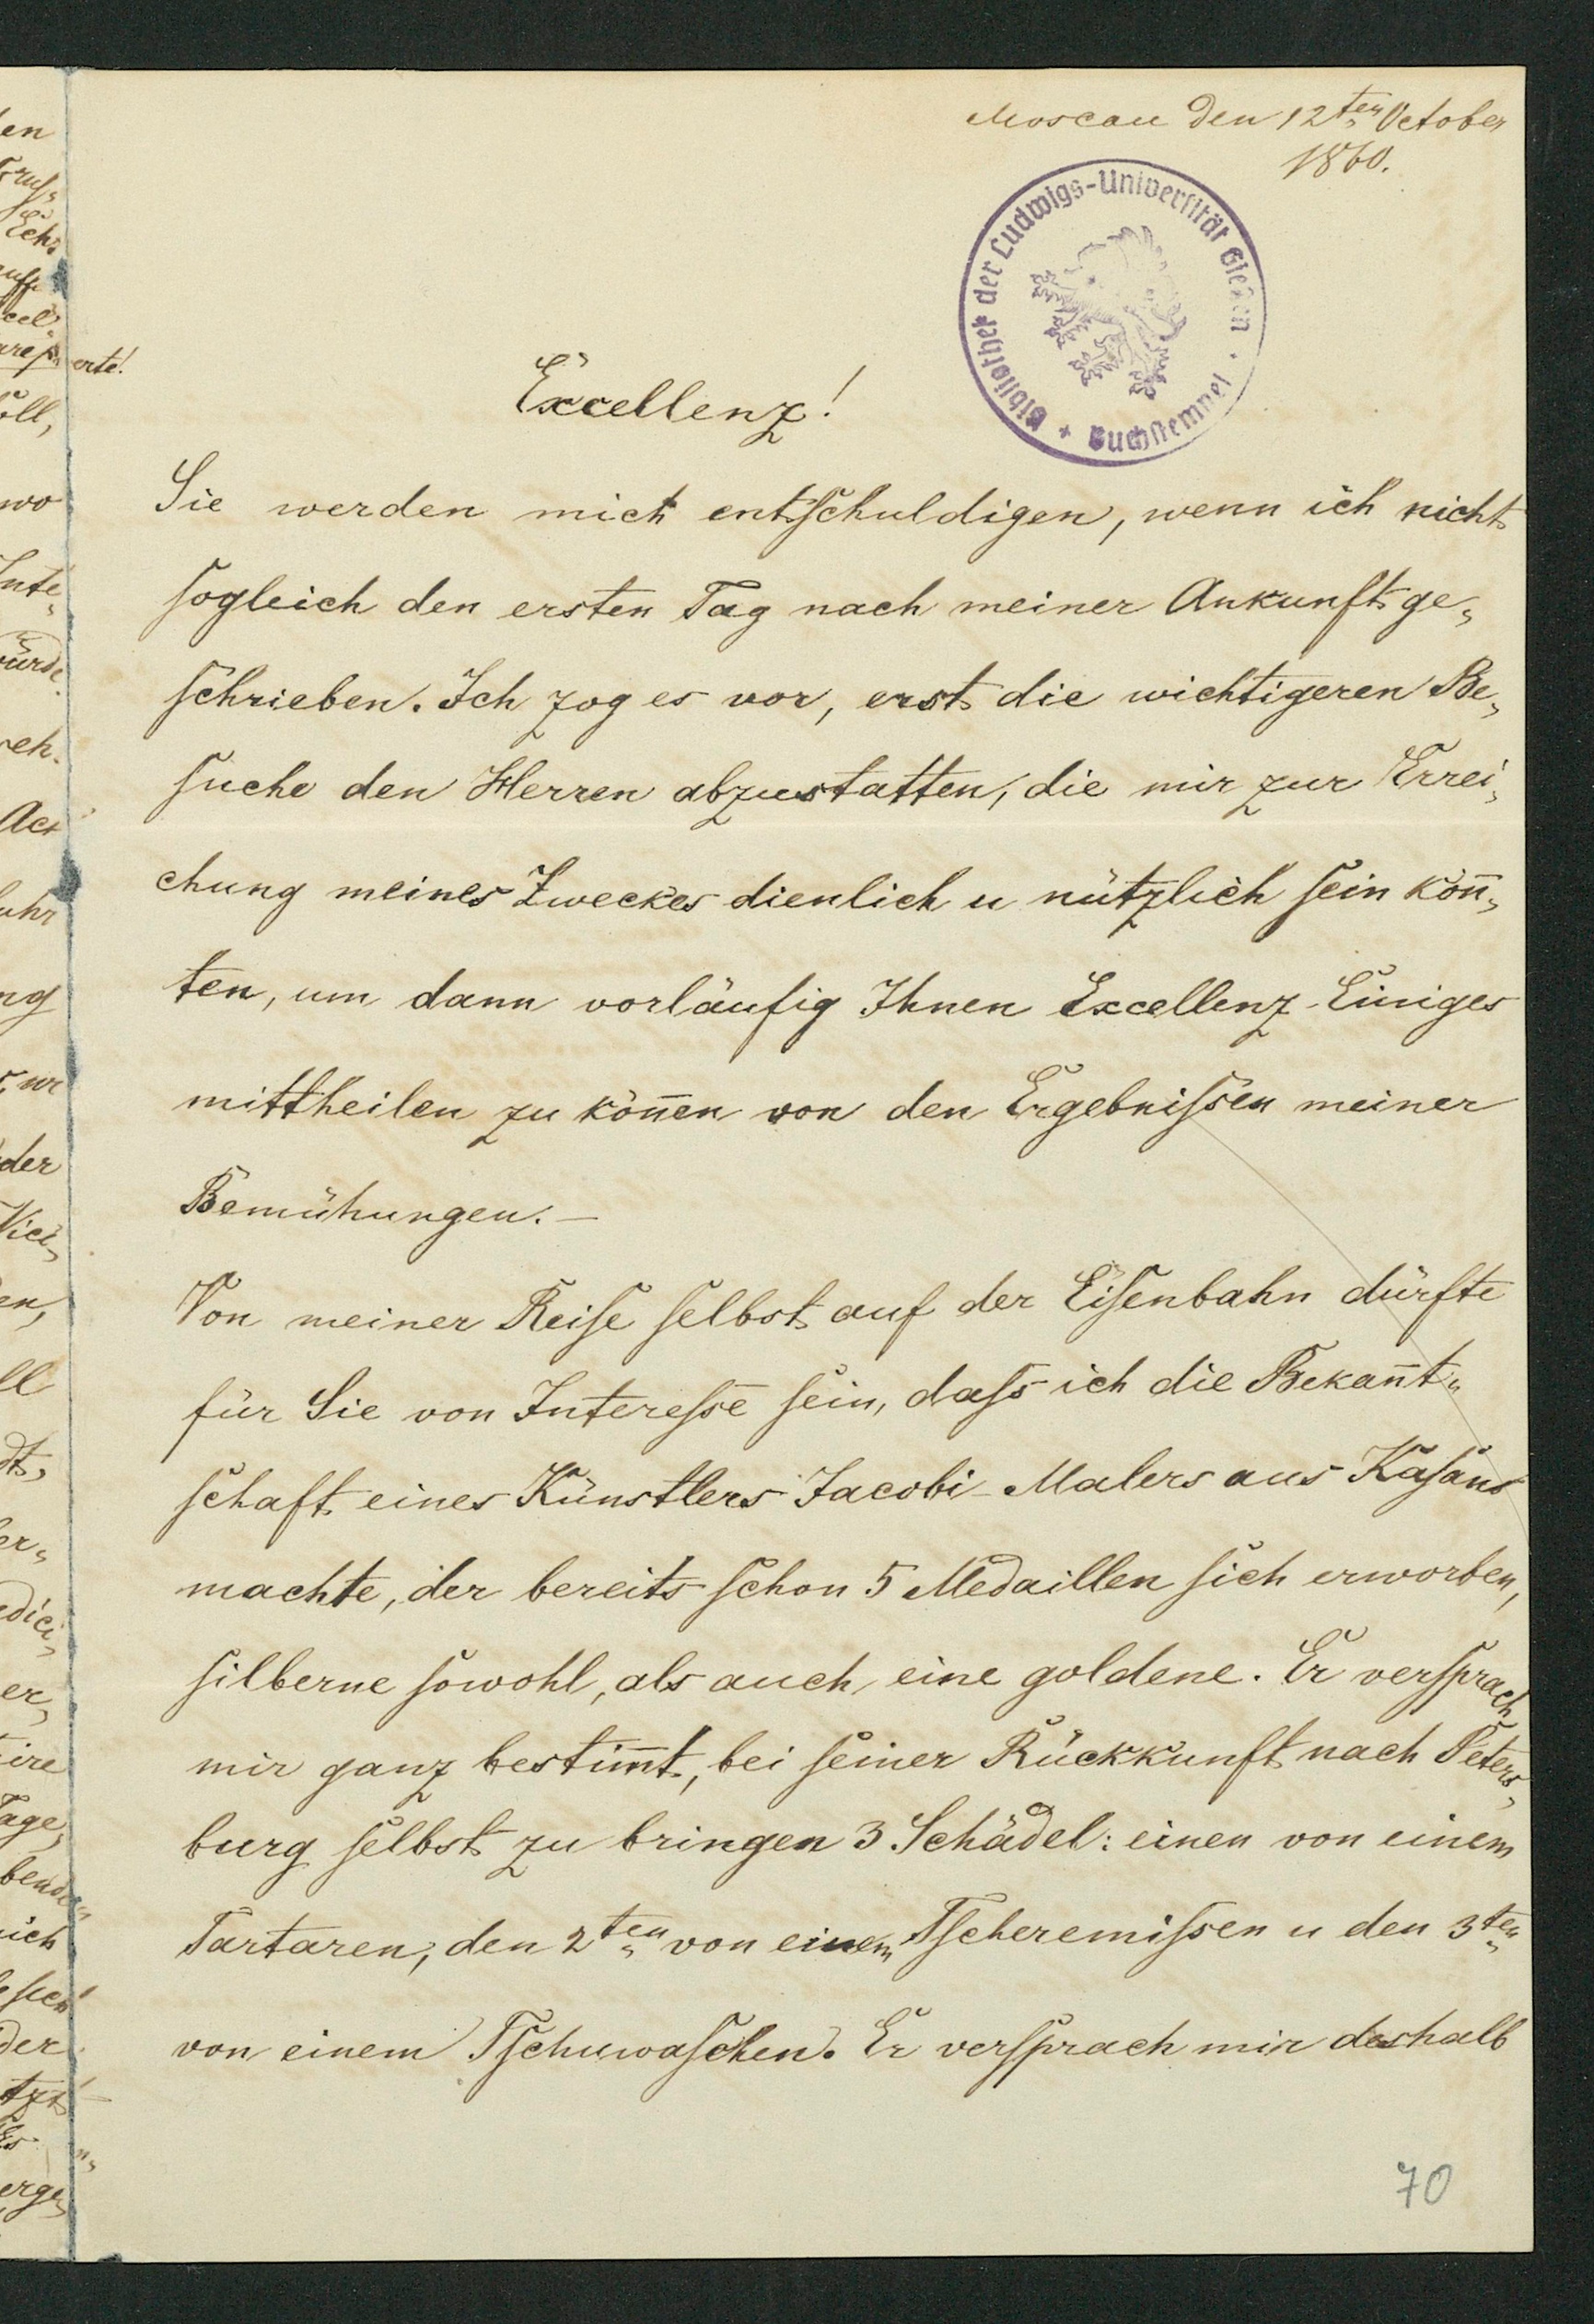 Moscau den 12ten October
1860.
Bibliothek der Ludwigs-Universität Gießen · Buchstempel +
Excellenz!
Sie werden mich entschuldigen, wenn ich nicht
sogleich den ersten Tag nach meiner Ankunft ge-
schrieben. Ich zog es vor, erst die wichtigeren Be-
suche den Herren abzustatten, die mir zur Errei-
chung meines Zweckes dienlich u nützlich sein kön̄-
ten, um dann vorläufig Ihnen Excellenz Einiges
mittheilen zu kön̄en von den Ergebnissen meiner
Bemühungen. —
Von meiner Reise selbst auf der Eisenbahn dürfte
für Sie von Interesse sein, dass ich die Bekan̄t-
schaft eines Künstlers Jacobi Malers aus Kasans
machte, der bereits schon 5 Medaillen sich erworben,
silberne sowohl, als auch eine goldene. Er versprach
mir ganz bestim̄t, bei seiner Rückkunft nach Peters-
burg selbst zu bringen 3 Schädel: einen von einem
Tartaren, den 2ten von einem Tscheremissen u den 3ten
von einem Tschuwaschen. Er versprach mir deshalb
70